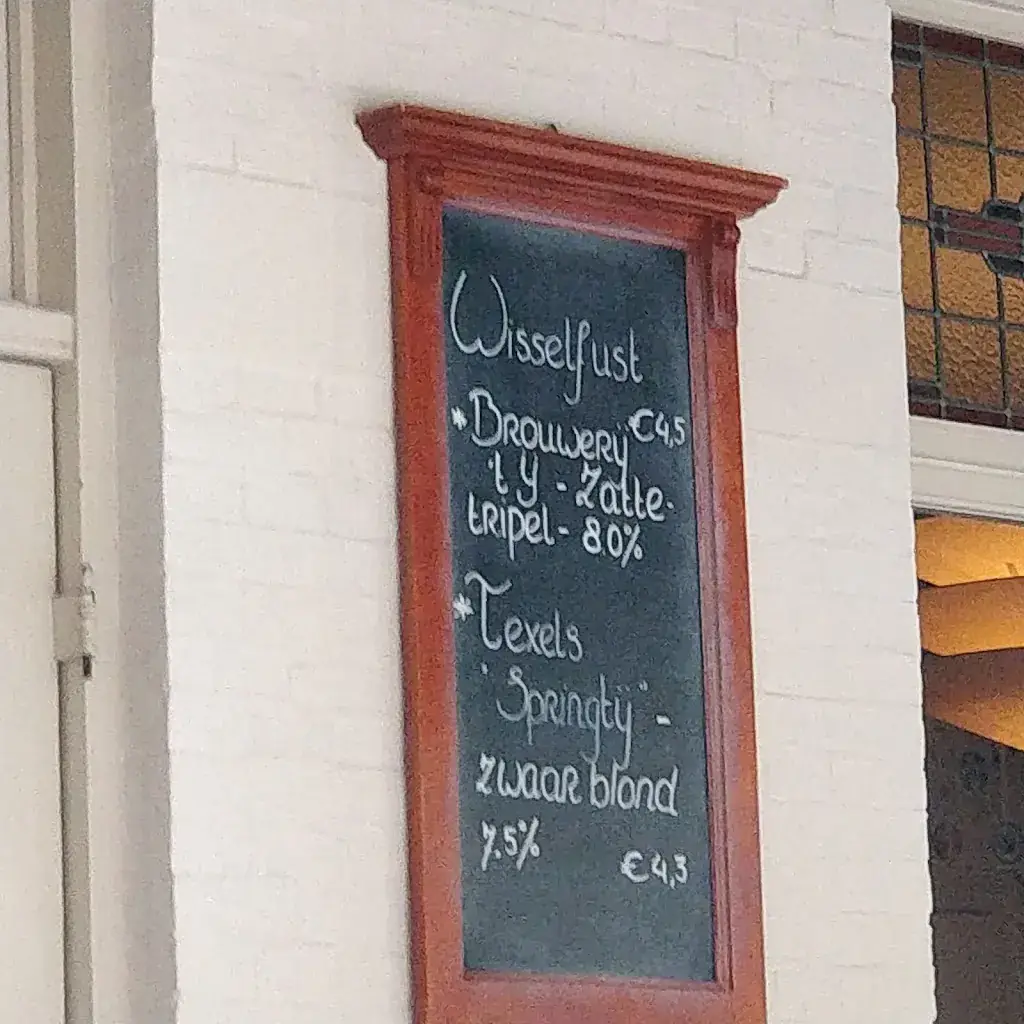 Wisselfust
*Brouwerij €4,5
't Y - Zatte-
tripel - 8.0%
*Texels
"Springtij" -
zwaar blond
7.5%
€4,3